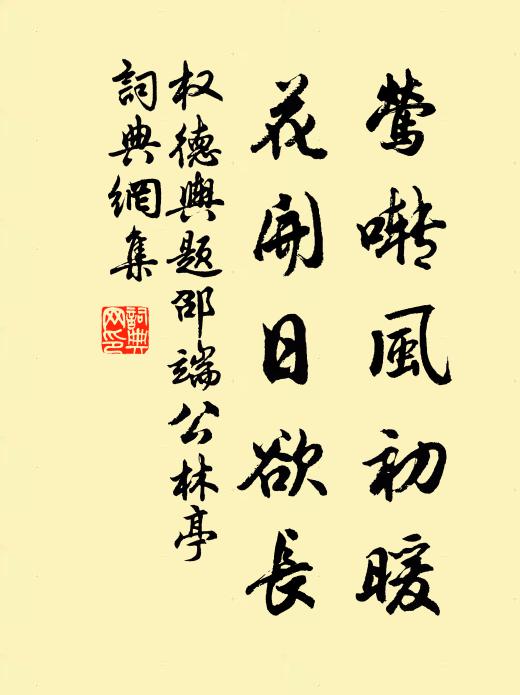 莺啭風初暖
花開日欲長
权德輿题邵端公林亭
詞典網集
詞典
网印